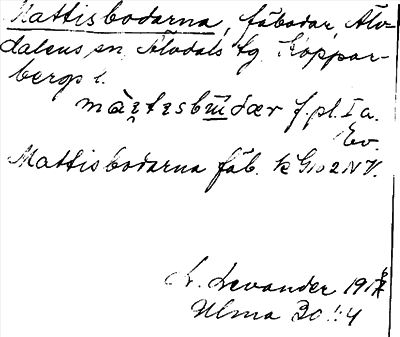 Mattisbodarna, fäbodar, Älv-
dalens sn, Älvdals tg, Koppar-
bergs l.
f. pl. I a.
Ev.
Mattisbodarna fäb. k G102NV.
L. Levander 1917
Ulma 30:4